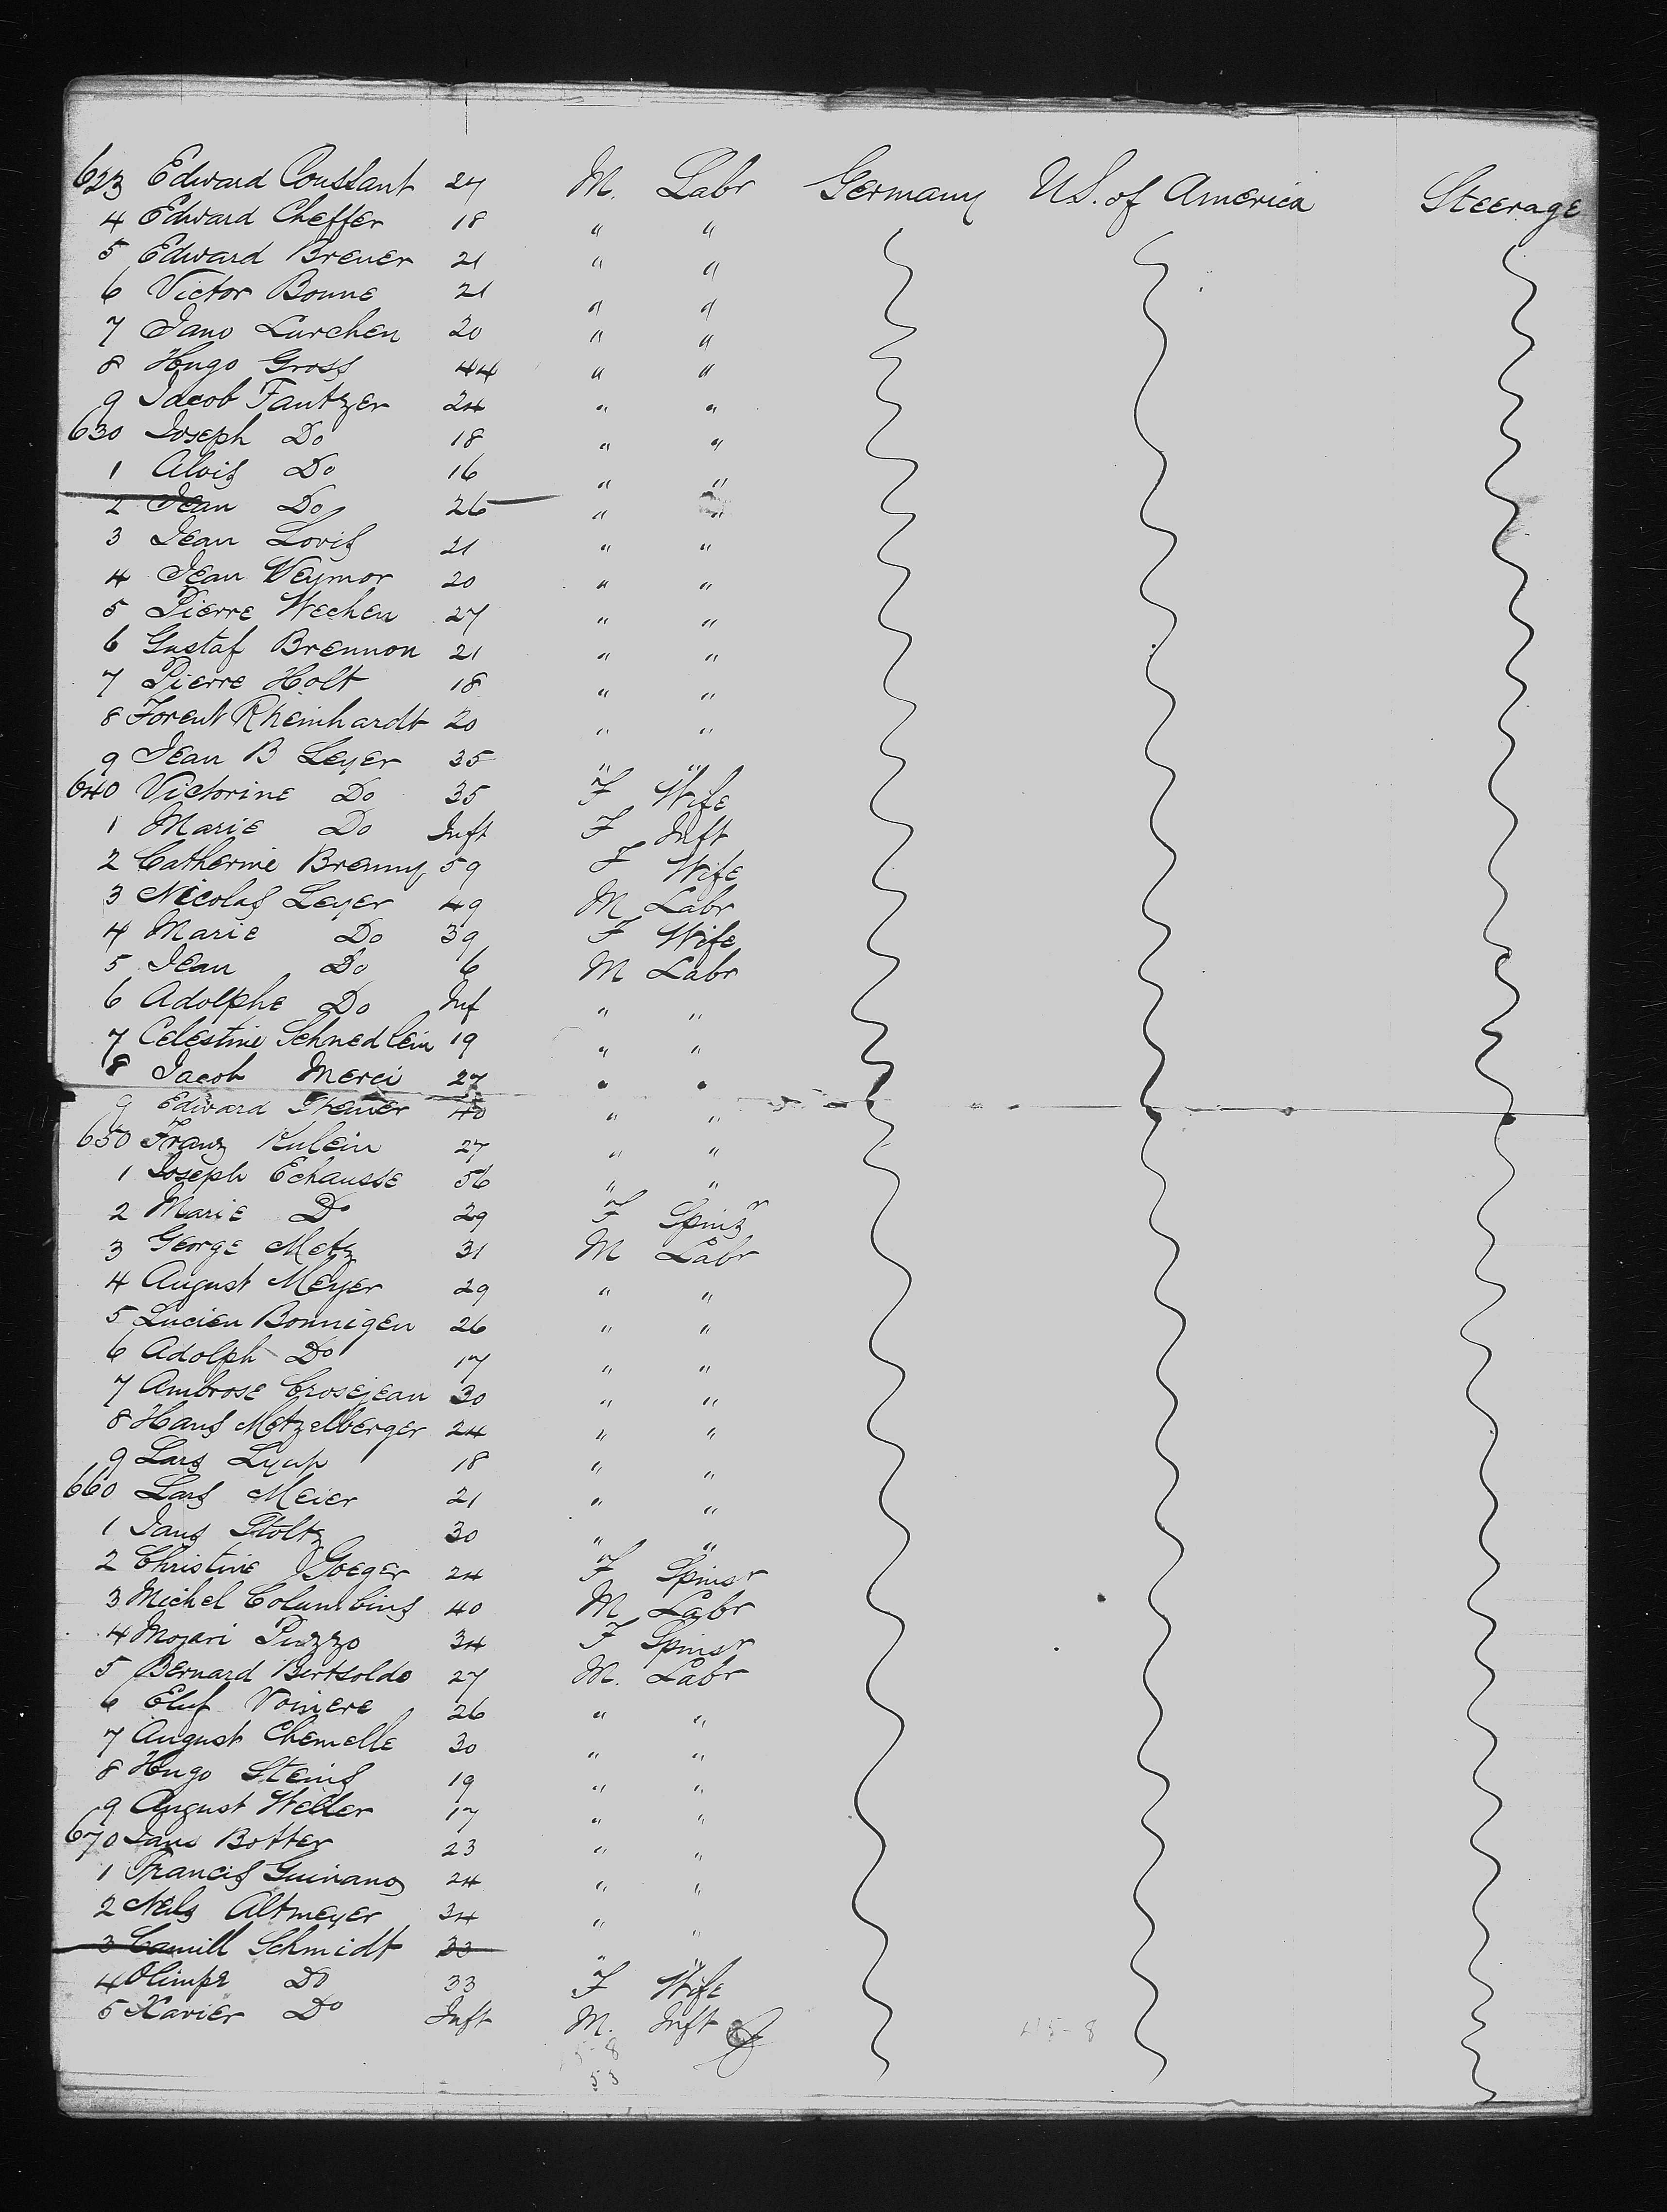 623 Edward Constant 27 M. Labr Germany U.S. of America Steerage
4 Edward Cheffer 18 " "
5 Edward Brener 21 " "
6 Victor Bonne 21 " "
7 Jano Lurchen 20 " "
8 Hugo Gross 44 " "
9 Jacob Fantzer 24 " "
630 Joseph Do 18 " "
1 Alois Do 16 " "
2 Jean Do 26 " "
3 Jean Loris 21 " "
4 Jean Weymor 20 " "
5 Pierre Wechen 27 " "
6 Gustaf Brennon 21 " "
7 Pierre Holt 18 " "
8 Forent Rheinhardt 20 " "
9 Jean B Leyer 35 " "
640 Victorine Do 35 F Wife
1 Marie Do Inft F Inft
2 Catherine Brenny 59 F Wife
3 Nicolas Leyer 49 M Labr
4 Marie Do 39 F Wife
5 Jean Do 6 M Labr
6 Adolphe Do Inf " "
7 Celestine Schnedlein 19 " "
8 Jacob Merci 27 " "
9 Edward 40 " "
650 Franz Kulein 27 " "
1 Joseph Echausse 56 " "
2 Marie Do 29 F Spinzr
3 George Metz 31 M Labr
4 August Meyer 29 " "
5 Lucien Bonnigen 26 " "
6 Adolph Do 17 " "
7 Ambrose Crosejean 30 " "
8 Hans Metzelberger 24 " "
9 Lars 18 " "
660 Lars Meier 21 " "
1 Jans Stoltz 30 " "
2 Christine Goeger 24 F Spinsr
3 Michel Columbins 40 M Labr
4 Mojari Puzzo 34 F Spinsr
5 Bernard Bertsoldo 27 M. Labr
6 Voiniere 26 " "
7 August Chemelle 30 " "
8 Hugo Steins 19 " "
9 August Weller 17 " "
670 Jans Botter 23 " "
1 Francis Guinano 24 " "
2 Nels Altmeyer 34 " "
3 Camill Schmidt 33 " "
4 Olimpe Do 33 F Wife
5 Xavier Do Inft M. Inft